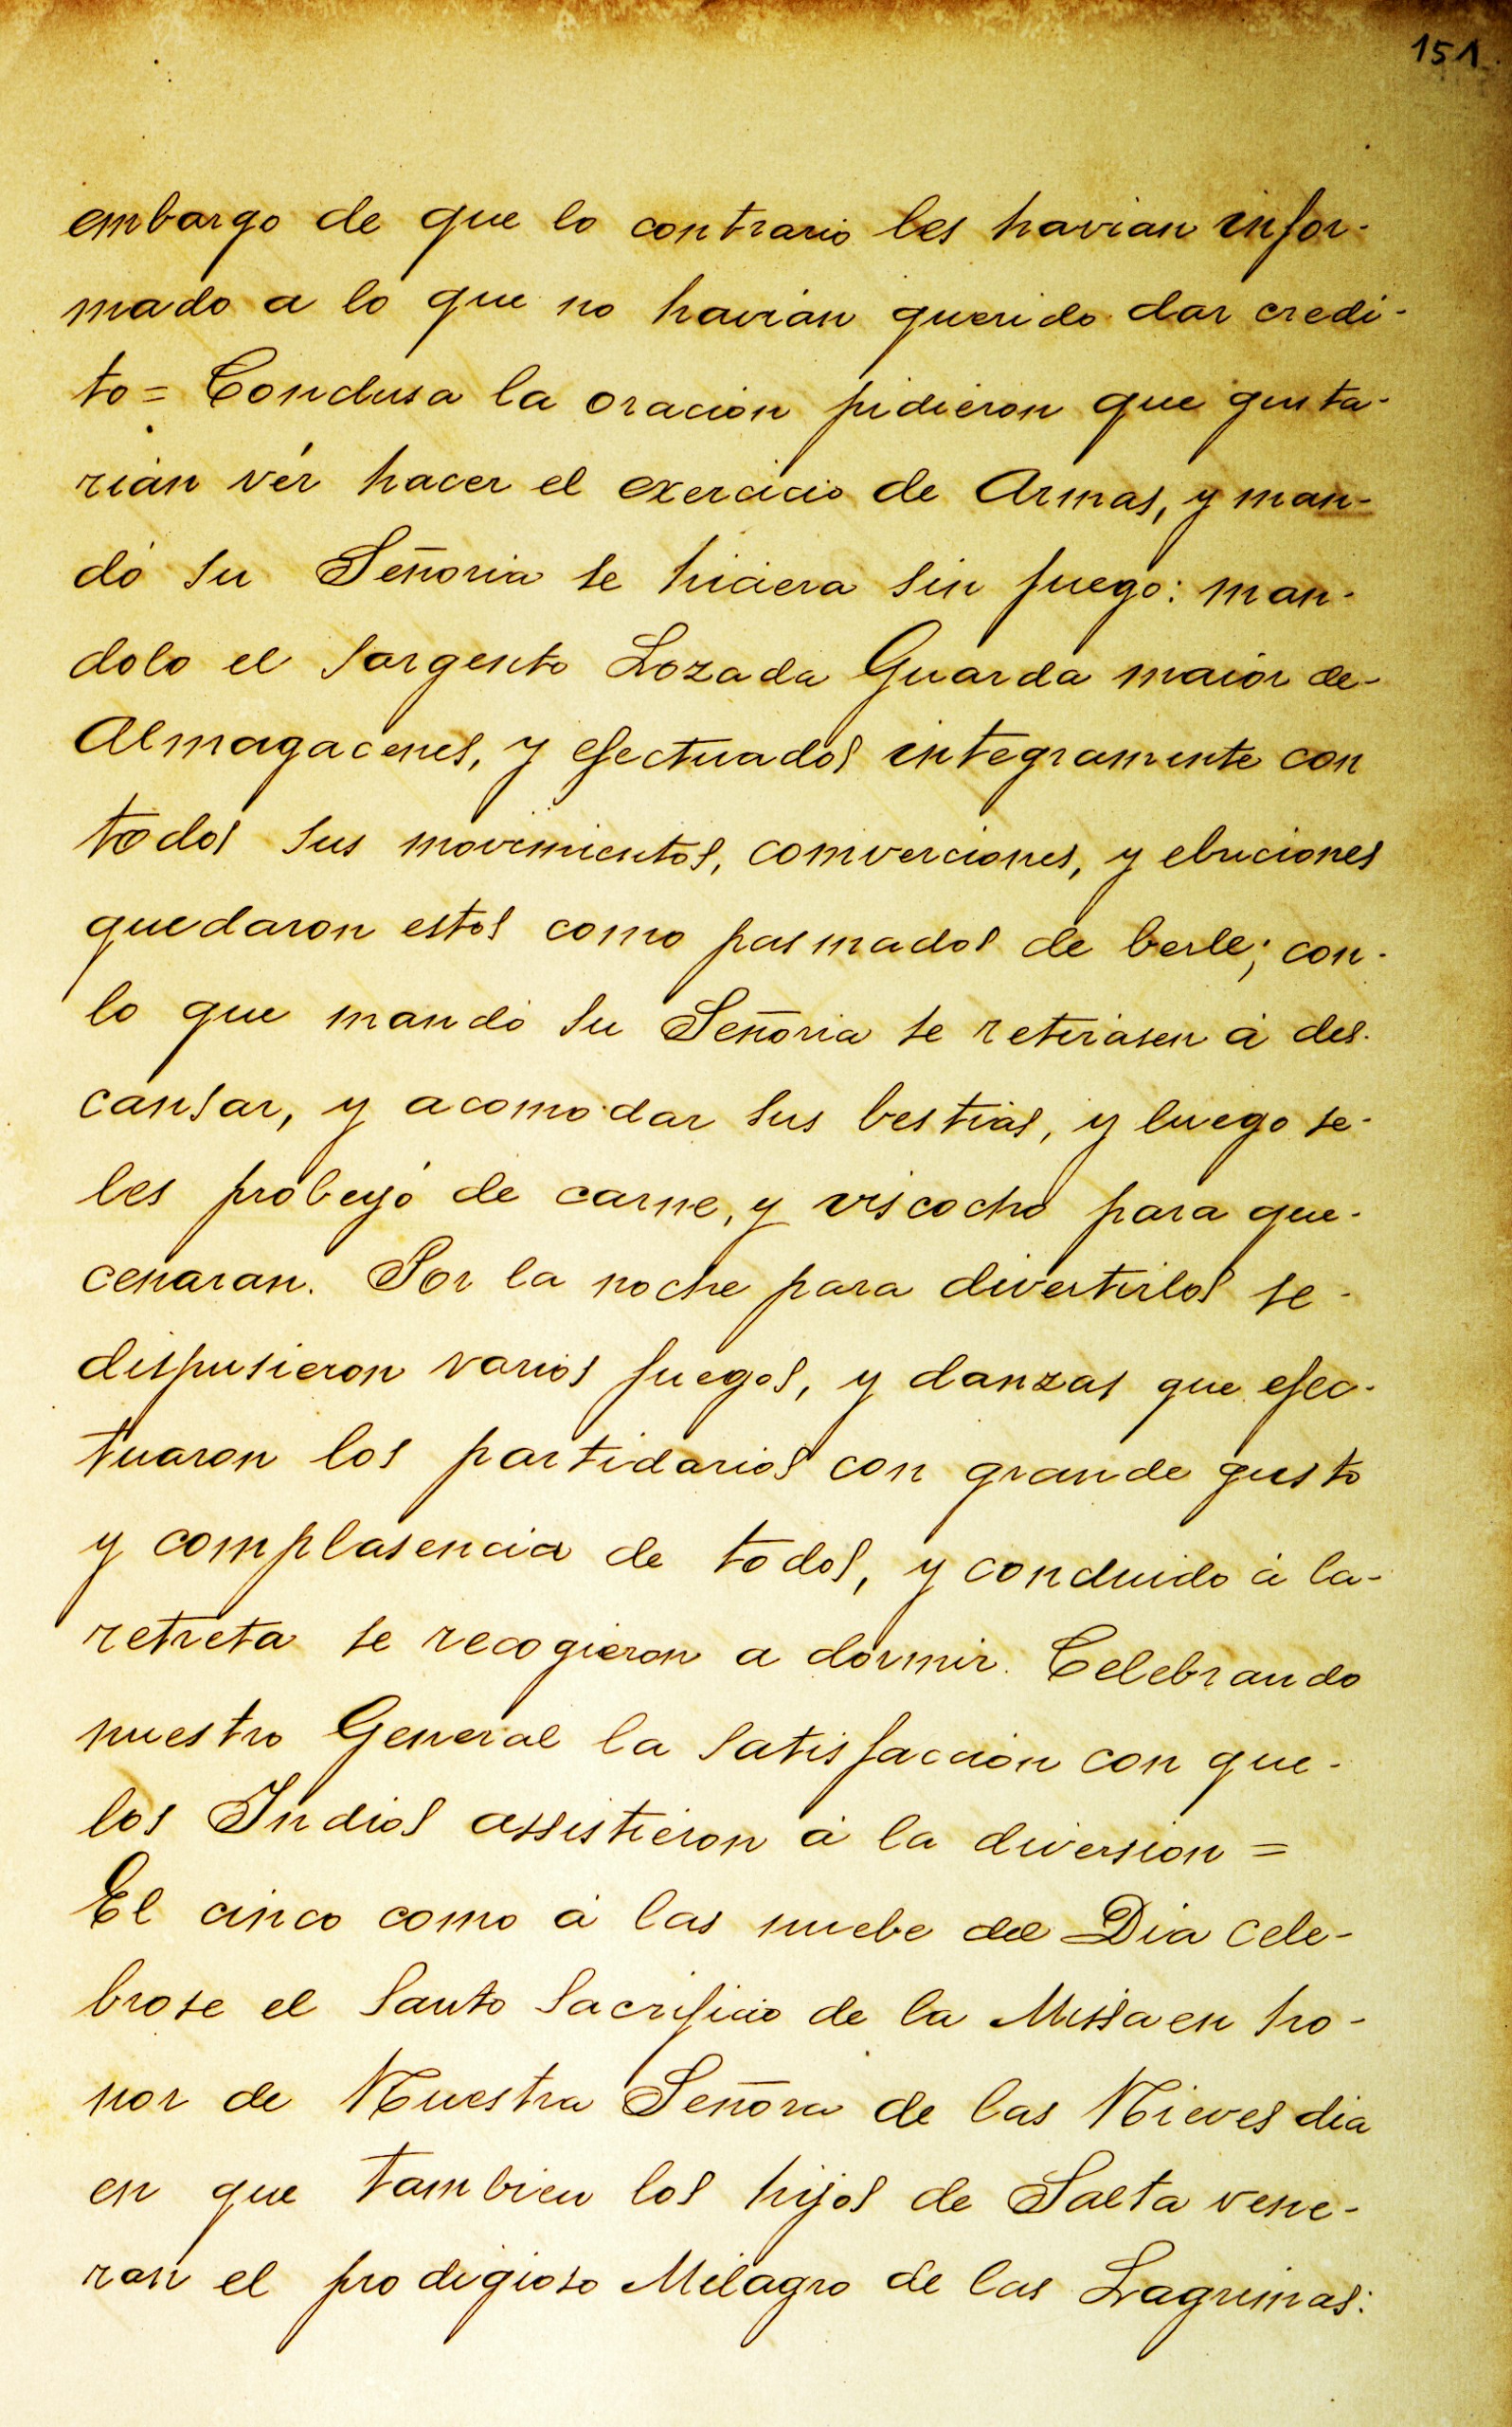 151.
embargo de que lo contrario les havian infor-
mado a lo que no havian querido dar credi-
to = Conclusa la oracion pidieron que gusta-
rian vér hacer el exercicio de Armas, y man-
dó su Señoria se hiciera sin fuego: man-
dolo el sargento Lozada Guarda maior de-
Almagacenes, y efectuados integramente con
todos sus movimientos, comverciones, y ebuciones
quedaron estos como pasmados de berle; con-
lo que mandó su Señoria se retirasen á des-
cansar, y acomodar sus bestias, y luego se-
les probeyó de carne, y viscocho para que-
cenaran. Por la noche para divertirlos se-
dispusieron varios fuegos, y danzas que efec-
tuaron los partidarios con grande gusto
y complasencia de todos, y concluido á la-
retreta se recogieron a dormir. Celebrando
nuestro General la satisfaccion con que-
los Indios assistieron á la diversion =
El cinco como á las nuebe del Dia cele-
brose el Santo Sacrificio de la Missa en ho-
nor de Nuestra Señora de las Nieves dia
en que tambien los hijos de Salta vene-
ran el prodigioso Milagro de las Lagrimas: